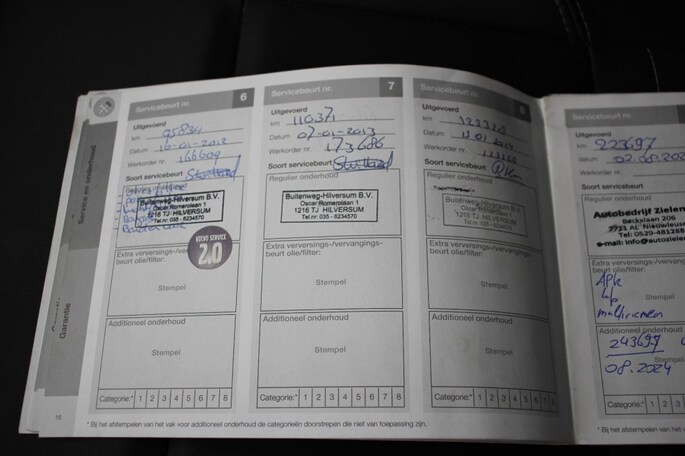 Service en onderhoud
Garantie
Servicebeurt nr. 6
Uitgevoerd
km 95834
Datum 16-01-2012
Werkorder nr. 166609
Soort servicebeurt
Regulier onderhoud
Buitenweg-Hilversum B.V.
Oscar Romerolaan 1
1216 TJ HILVERSUM
Tel.nr: 035 - 6234570
VOLVO SERVICE
2.0
Extra verversings-/vervangings-
beurt olie/filter:
Stempel
Additioneel onderhoud
Stempel
Categorie:* 1 2 3 4 5 6 7 8
16
Servicebeurt nr. 7
Uitgevoerd
km 110371
Datum 07-01-2013
Werkorder nr. 173686
Soort servicebeurt
Regulier onderhoud
Buitenweg-Hilversum B.V.
Oscar Romerolaan 1
1216 TJ HILVERSUM
Tel.nr: 035 - 6234570
Extra verversings-/vervangings-
beurt olie/filter:
Stempel
Additioneel onderhoud
Stempel
Categorie:* 1 2 3 4 5 6 7 8
Servicebeurt nr. 8
Uitgevoerd
km
Datum
Werkorder nr.
Soort servicebeurt
Buitenweg-Hilversum B.V.
Oscar Romerolaan 1
1216 TJ HILVERSUM
Extra verversings-/vervangings-
beurt olie/filter:
Stempel
Additioneel onderhoud
Stempel
Categorie:* 1 2 3 4 5 6 7 8
* Bij het afstempelen van het vak voor additioneel onderhoud de categorieën doorstrepen die niet van toepassing zijn.
Servicebeurt nr.
Uitgevoerd
km 223697
Datum
Werkorder nr.
Soort servicebeurt
Regulier onderhoud
Autobedrijf Zielen
206
7711 AL Nieuwleuse
Tel: 0529-481268
e-mail: info@autoziele
Extra verversings-/vervang
beurt olie/filter:
APK
multiriemen
Additioneel onderhoud
243697
08.2024
Categorie:* 1 2 3 4
* Bij het